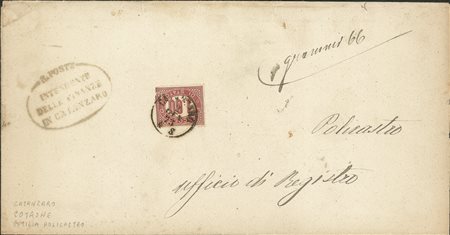 R. POSTE
INTENDENTE
DELLE FINANZE
IN CATANZARO
grammi 66
Policastro
ufficio di Registro
CATANZARO
COTRONE
PETILIA POLICASTRO